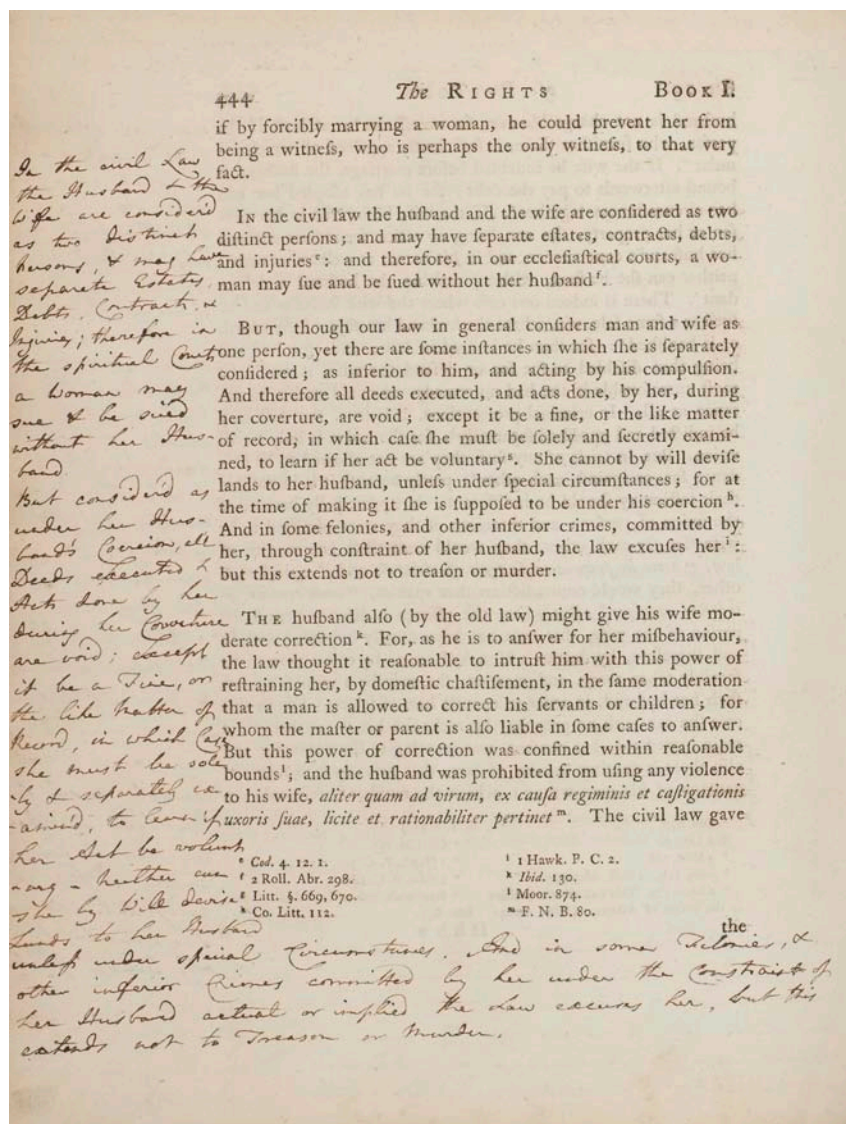 444 The RIGHTS BOOK I.
if by forcibly marrying a woman, he could prevent her from
being a witneſs, who is perhaps the only witneſs, to that very
fact.
IN the civil law the huſband and the wife are conſidered as two
diſtinct perſons; and may have ſeparate eſtates, contracts, debts,
and injuries e: and therefore, in our eccleſiaſtical courts, a wo-
man may ſue and be ſued without her huſband f.
BUT, though our law in general conſiders man and wife as
one perſon, yet there are ſome inſtances in which ſhe is ſeparately
conſidered; as inferior to him, and acting by his compulſion.
And therefore all deeds executed, and acts done, by her, during
her coverture, are void; except it be a fine, or the like matter
of record, in which caſe ſhe muſt be ſolely and ſecretly exami-
ned, to learn if her act be voluntary g. She cannot by will deviſe
lands to her huſband, unleſs under ſpecial circumſtances; for at
the time of making it ſhe is ſuppoſed to be under his coercion h.
And in ſome felonies, and other inferior crimes, committed by
her, through conſtraint of her huſband, the law excuſes her i:
but this extends not to treaſon or murder.
THE huſband alſo (by the old law) might give his wife mo-
derate correction k. For, as he is to anſwer for her miſbehaviour,
the law thought it reaſonable to intruſt him with this power of
reſtraining her, by domeſtic chaſtiſement, in the ſame moderation
that a man is allowed to correct his ſervants or children; for
whom the maſter or parent is alſo liable in ſome caſes to anſwer.
But this power of correction was confined within reaſonable
bounds l; and the huſband was prohibited from uſing any violence
to his wife, aliter quam ad virum, ex cauſa regiminis et caſtigationis
uxoris ſuae, licite et rationabiliter pertinet m. The civil law gave
e Cod. 4. 12. 1.
f 2 Roll. Abr. 298.
g Litt. §. 669, 670.
h Co. Litt. 112.
i 1 Hawk. P. C. 2.
k Ibid. 130.
l Moor. 874.
m F. N. B. 80.
the
In the civil Law
the Husband & the
Wife are consider'd
as two distinct
Persons, & may have
separate Estates
Debts, Contracts, &
Injuries; therefore in
the spiritual Court
a Woman may
sue & be sued
without her Hus-
band.
But consider'd as
under her Hus-
band's Coercion, all
Deeds executed &
Acts done by her
during her Coverture
are void; except
it be a Fine, or
the like Matter of
Record, in which Case
she must be sole
-ly & separately ex
-amined, to learn if
her Act be volunt
-ary - Neither can
she by Will devise
Lands to her Husband
unleſs under special Circumstances. And in some Felonies, &
other inferior Crimes committed by her under the Constraint of
her Husband actual or implied the Law excuses her, but this
extends not to Treason or Murder.